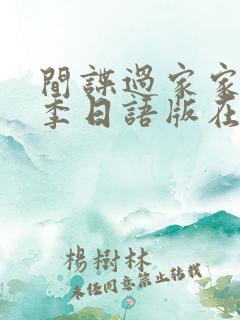 間諜過家家
季日語版在
楊樹林
未經同意禁止轉載